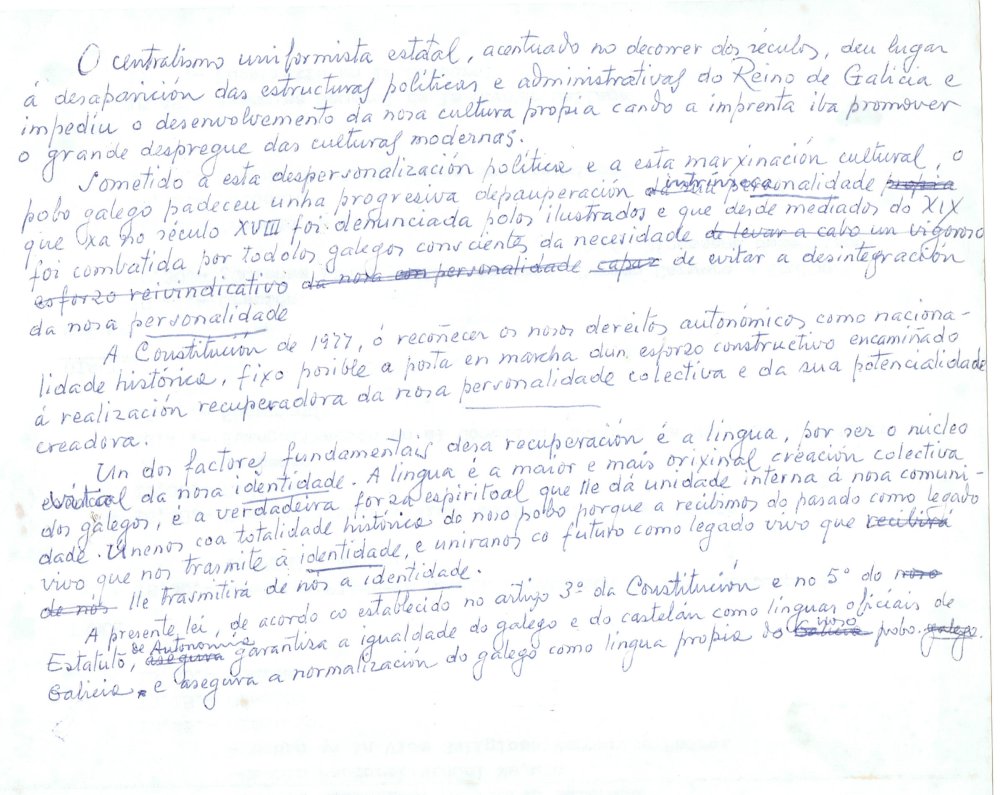 O centralismo uniformista estatal, acentuado no decorrer dos séculos, deu lugar
á desaparición das estructuras políticas e administrativas do Reino de Galicia e
impediu o desenvolvemento da nosa cultura propia cando a imprenta iba promover
o grande despregue das culturas modernas.
Sometido a esta despersonalización política e a esta marxinación cultural, o
pobo galego padeceu unha progresiva depauperación intrínseca personalidade propia
que xa no século XVIII foi denunciada polos ilustrados e que desde mediados do XIX
foi combatida por todolos galegos conscientes da necesidade de levar a cabo un vigoroso
esforzo reivindicativo da nosa personalidade capaz de evitar a desintegración
da nosa personalidade
A Constitución de 1977, ó recoñecer os nosos dereitos autonómicos como naciona-
lidade histórica, fixo posible a posta en marcha dun esforzo constructivo encamiñado
á realización recuperadora da nosa personalidade colectiva e da sua potencialidade
creadora.
Un dos factores fundamentais desa recuperación é a lingua, por ser o núcleo
da nosa identidade. A lingua é a maior e mais orixinal creación colectiva
dos galegos, é a verdadeira forza espiritoal que lle dá unidade interna á nosa comuni-
dade. Únenos coa totalidade histórica do noso pobo porque a recibimos do pasado como legado
vivo que nos trasmite á identidade, e uniranos co futuro como legado vivo que recibirá
de nós lle trasmitirá de nós a identidade.
A presente lei, de acordo co establecido no artigo 3º da Constitución e no 5º do noso
Estatuto, de Autonomía asegura garantisa a igualdade do galego e do castelán como linguas oficiais de
Galicia, e asegura a normalización do galego como lingua propia do Galicia noso pobo. galego.